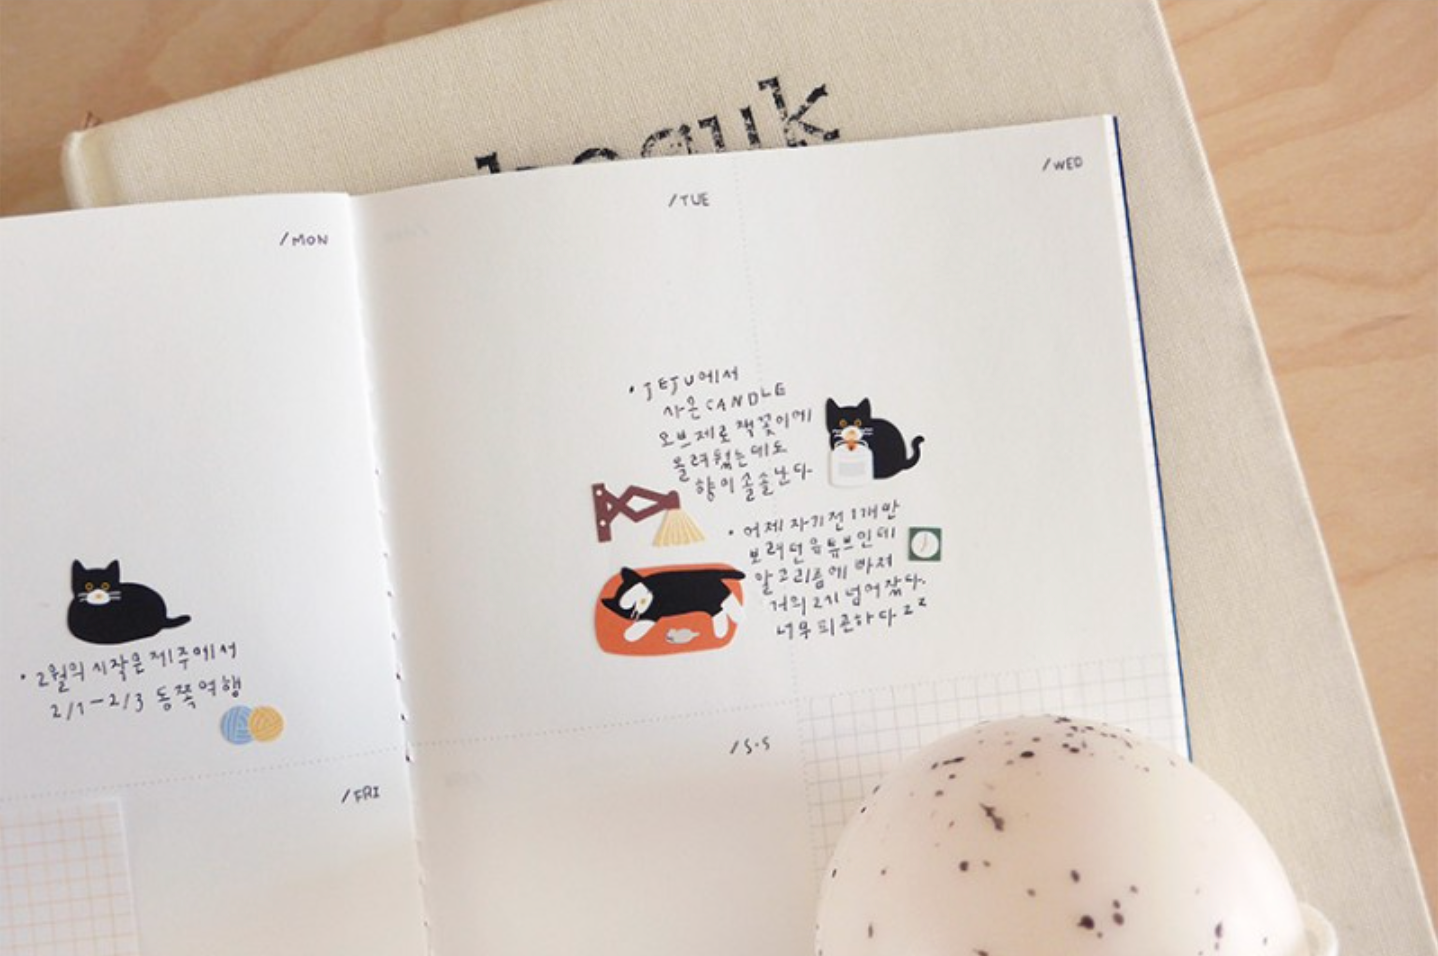 boguk
/MON
/TUE
/WED
• 2월의 시작은 제주에서
2/1-2/3 동쪽여행
• JEJU에서
사온 CANDLE
오브제로 책꽂이에
올려뒀는데도
향이 솔솔난다
• 어제 자기전 1개만
보려던 유튜브인데
알고리즘에 빠져
거의 2시 넘어잤다.
너무 피곤하다 zz
/FRI
/S·S